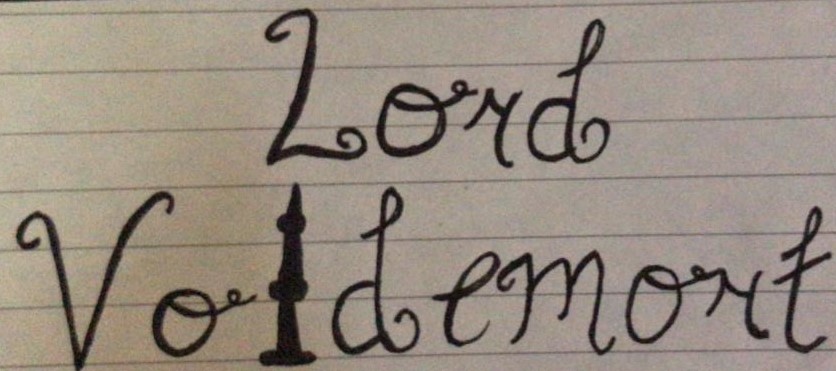 Lord
Voldemort